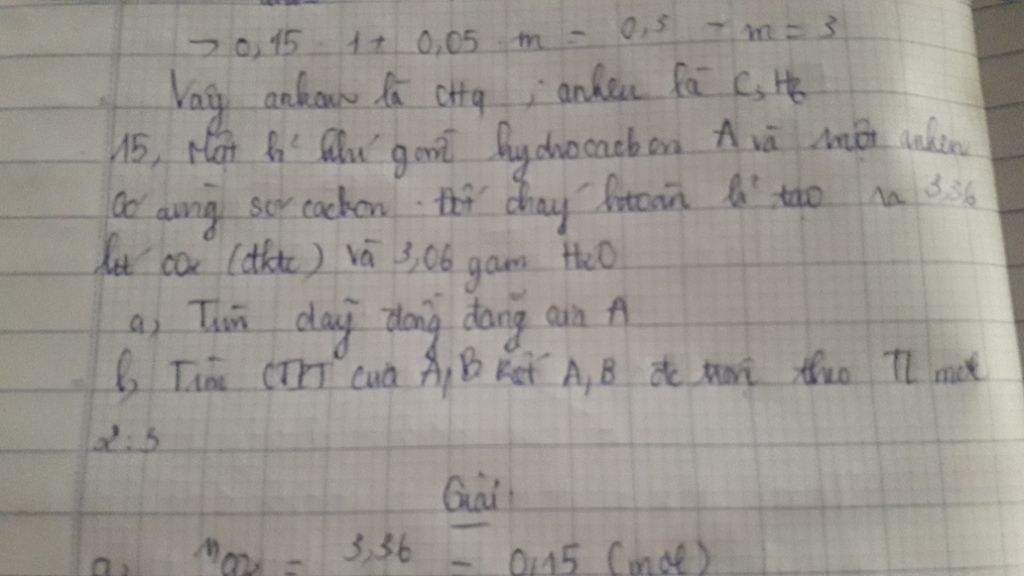 → 0,15 . 1 + 0,05 . m = 0,3 → m = 3
Vậy ankan là CH4 ; anken là C3H6
15, Một h² khí gồm hydrocacbon A và một anken
có cùng số cacbon . Đốt cháy htoàn h² tạo ra 3,36
lít CO2 (đktc) và 3,06 gam H2O
a, Tìm dãy đồng đẳng của A
b, Tìm CTPT của A, B biết A, B đc trộn theo TL mol
2:3
Giải
a, nCO2 = 3,36 = 0,15 (mol)